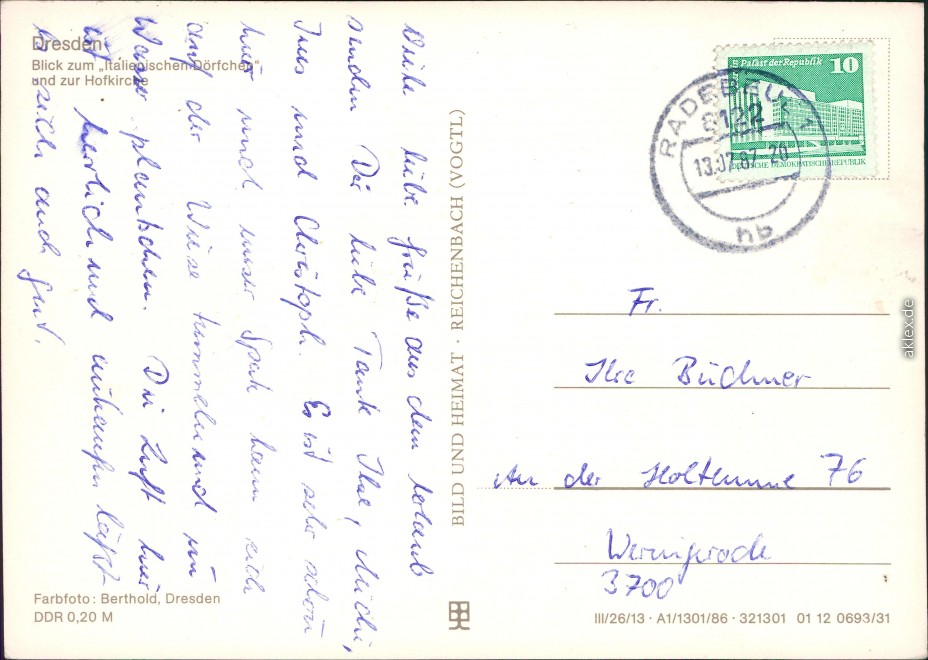 Dresden
Blick zum „Italienischen Dörfchen“
und zur Hofkirche
Viele liebe Grüße aus dem Urlaub
senden Dir liebe Tante Ilse, Michi,
Ines und Christoph. Es ist sehr schön
hier und unser Spatz kann sich
auf der Wiese tummeln und im
Wasser plantschen. Die Luft hier
ist herrlich und
auch gut.
Farbfoto: Berthold, Dresden
DDR 0,20 M
BILD UND HEIMAT · REICHENBACH (VOGTL)
Palast der Republik 10
DEUTSCHE DEMOKRATISCHE REPUBLIK
RADEBEUL 1
8122
13.07.87-20
hb
Fr.
Ilse Büchner
An der Holtemme 76
Wernigerode
3700
III/26/13 · A1/1301/86 · 321301 01 12 0693/31
aklex.de